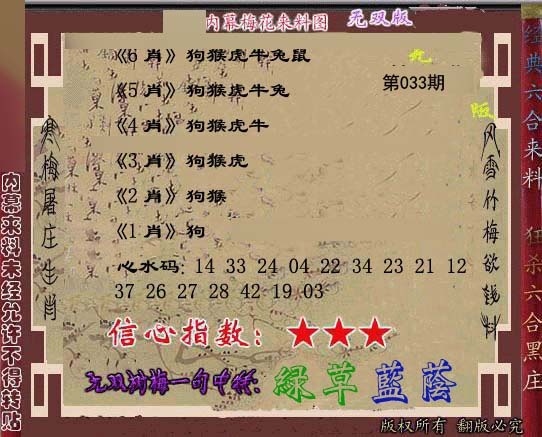 内幕梅花来料图 无双版
《6 肖》狗猴虎牛兔鼠
第033期
《5 肖》狗猴虎牛兔
《4 肖》狗猴虎牛
《3 肖》狗猴虎
《2 肖》狗猴
《1 肖》狗
心水码: 14 33 24 04 22 34 23 21 12
37 26 27 28 42 19 03
信心指数: ★★★
一句中特: 綠草藍蔭
寒梅屠庄生肖
风雪竹梅欲钱料
内幕来料未经允许不得转贴
经典六合来料
狂杀六合黑庄
版权所有 翻版必究